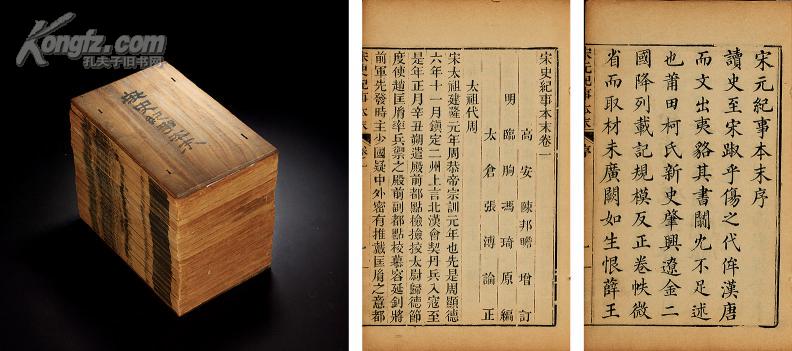 Kongfz.com
孔夫子旧书网
宋元紀事本末序
讀史至宋踧乎傷之代侔漢唐
而文出夷貉其書闒冗不足述
也莆田柯氏新史肇興遼金二
國降列載記規模反正卷帙微
省而取材未廣闕如生恨薛王
宋史紀事本末卷一
高安陳邦瞻增訂
明臨朐馮琦原編
太倉張溥論正
太祖代周
宋太祖建隆元年周恭帝宗訓元年也先是周顯德
六年十一月鎮定二州上言北漢會契丹兵入寇至
是年正月辛丑朔遣殿前都點檢撿挍太尉歸德節
度使趙匡胤率兵禦之殿前副都點檢慕容延釗將
前軍先發時主少國疑中外密有推戴匡胤之意都